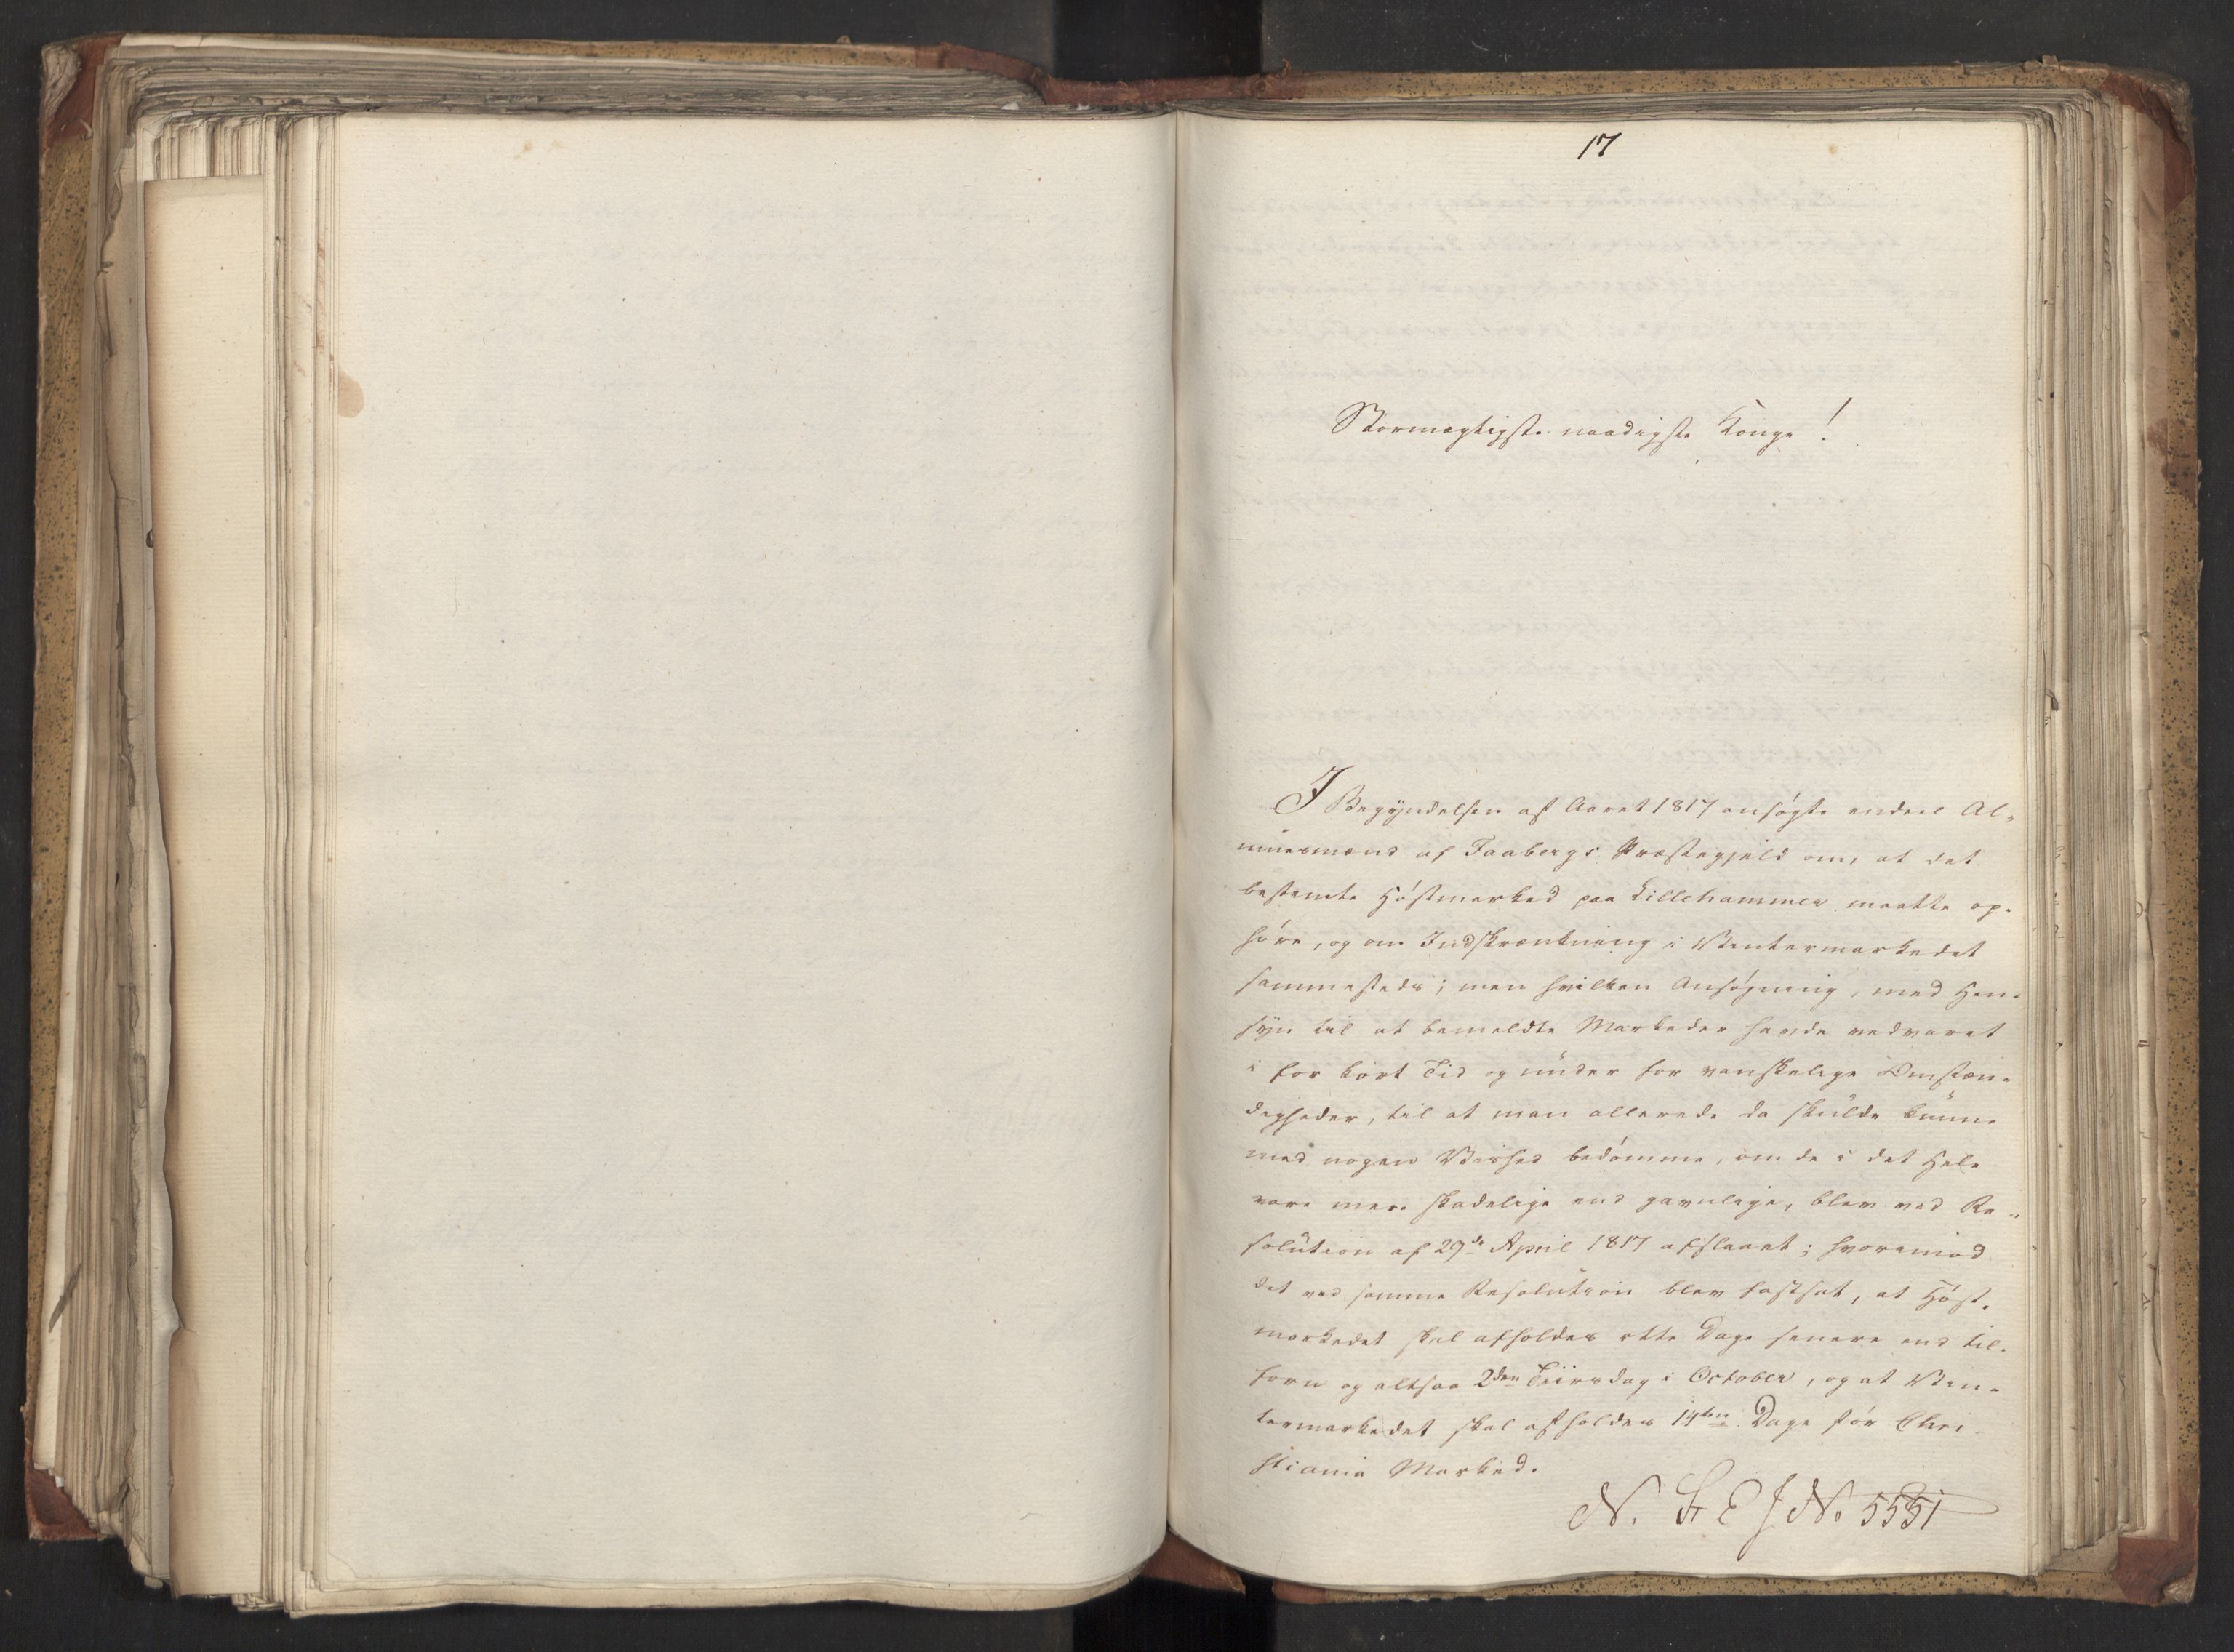 17
Stormægtigste naadigste Konge!
I Begyndelsen af Aaret 1817 ansøgte endeel Al-
muesmænd af Faabergs Præstegjeld om, at det
bestemte Høstmarked paa Lillehammer maatte op-
høre, og om Indskrænkning i Vintermarkedet
sammesteds; men hvilken Ansøgning, med Hen-
syn til at bemeldte Markeder havde vedvaret
i for kort Tid og under for vanskelige Omstæn-
digheder, til at man allerede da skulde kunne
med nogen Vished bedømme, om de i det Hele
vare mere skadelige end gavnlige, blev ved Re-
solution af 29de April 1817 afslaaet; hvorimod
det ved samme Resolution blev fastsat, at Høst-
markedet skal afholdes otte Dage senere end til-
forn og altsaa 2den Tiirsdag i October, og at Vin-
termarkedet skal afholdes 14ten Dage før Chri-
stiania Marked.
N. 5551